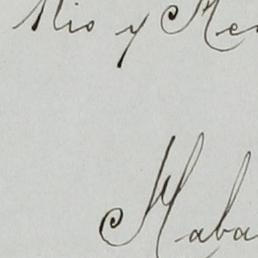 Mio y Me
Haba